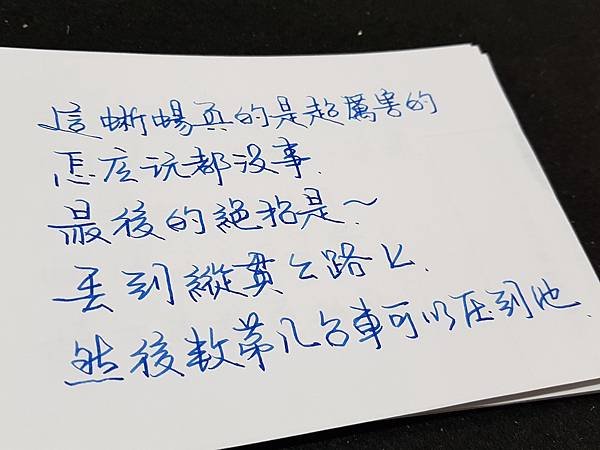 這蜥蜴真的是超厲害的
怎庅玩都沒事.
最後的絕招是～
丟到縱貫公路上.
然後数第几台車可以压到他.